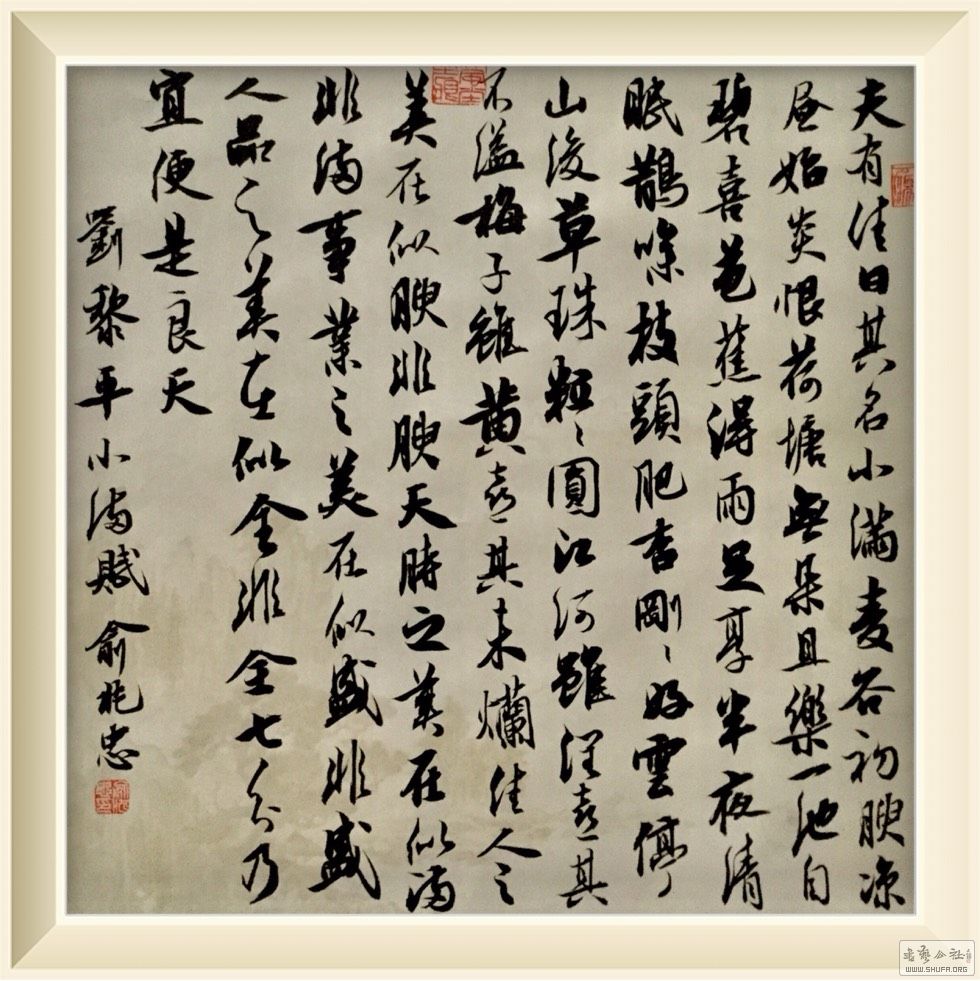 夫有佳日其名小滿麦谷初腴凉
昼始炎恨荷塘無朵且樂一池自
碧喜芭蕉得雨足享半夜清
眠鵲噪枝頭肥杏剛〻好雲停
山後草珠顆〻圓江河雖涅喜其
不溢梅子雖黄喜其未爛佳人之
美在似腴非腴天時之美在似满
非满事業之美在似盛非盛
人品之美在似全非全七分乃
宜便是良天
劉黎平小满賦俞兆忠
書藝公社
WWW.SHUFA.ORG